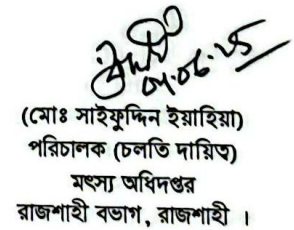 ০৭.০৮.২৫
(মোঃ সাইফুদ্দিন ইয়াহিয়া)
পরিচালক (চলতি দায়িত্ব)
মৎস্য অধিদপ্তর
রাজশাহী বভাগ, রাজশাহী ।